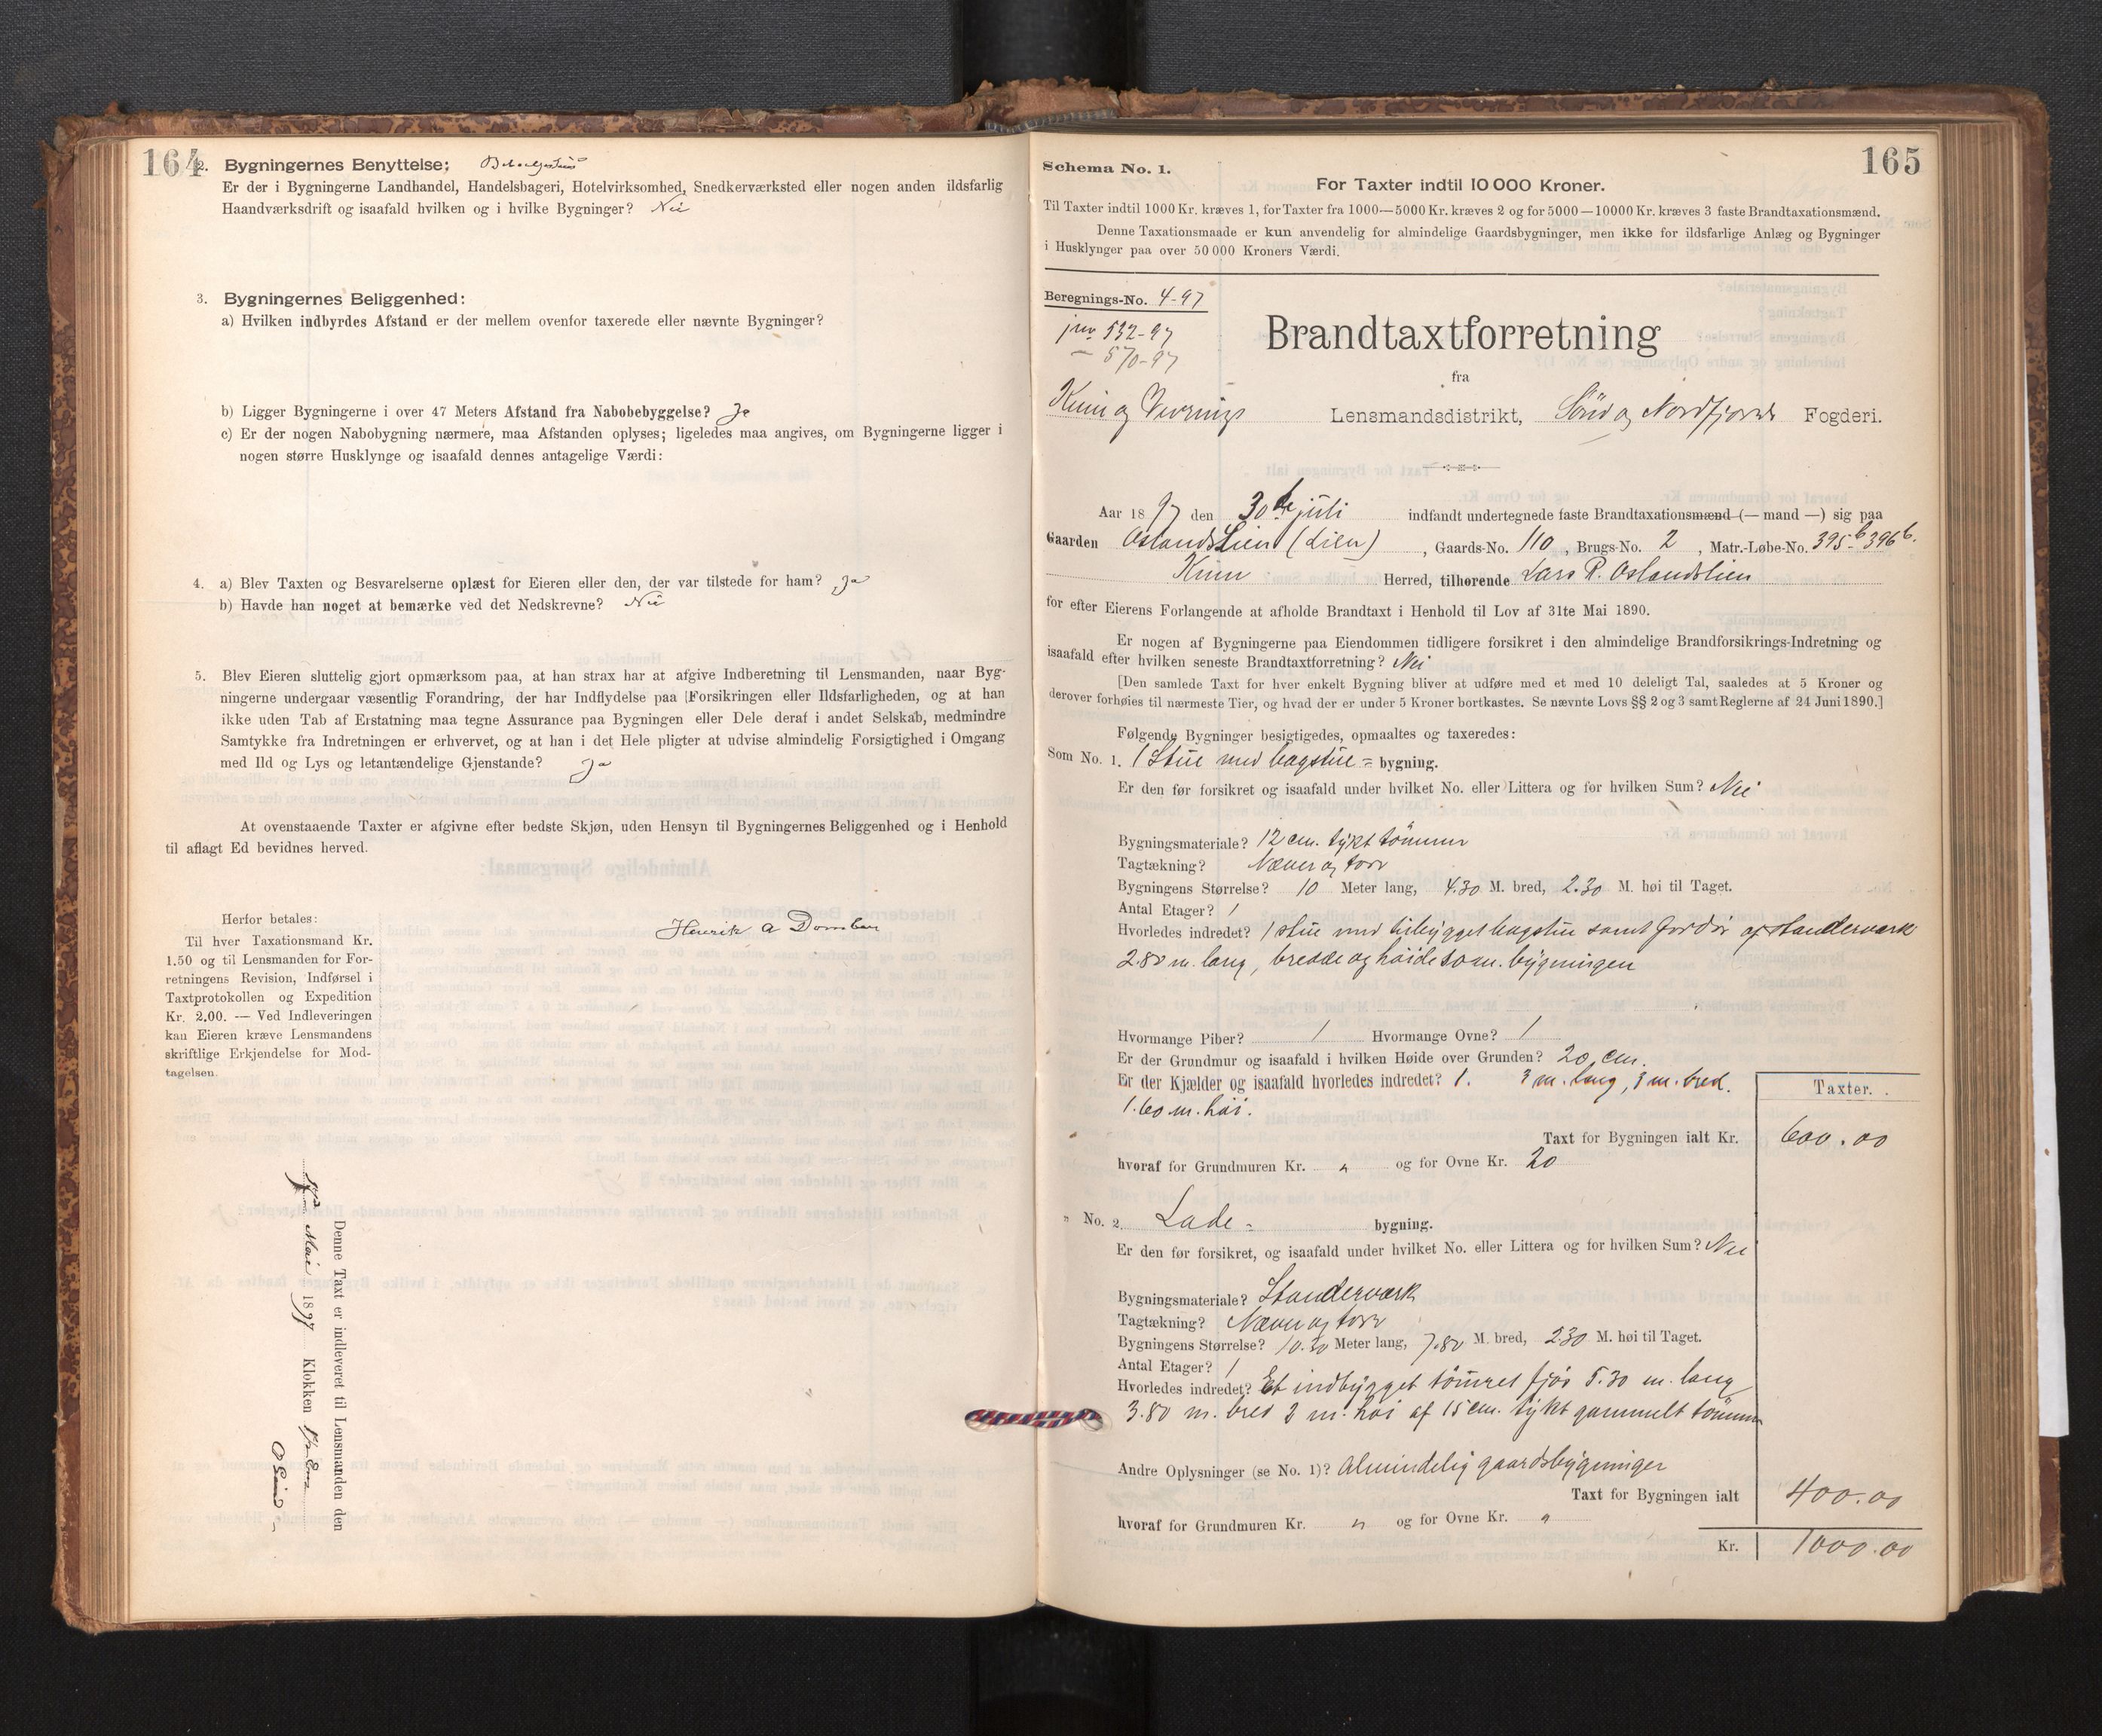 164
2. Bygningernes Benyttelse:
Er der i Bygningerne Landhandel, Handelsbageri, Hotelvirksomhed, Snedkerværksted eller nogen anden ildsfarlig
Haandværksdrift og isaafald hvilken og i hvilke Bygninger? Nei
3. Bygningernes Beliggenhed:
a) Hvilken indbyrdes Afstand er der mellem ovenfor taxerede eller nævnte Bygninger?
b) Ligger Bygningerne i over 47 Meters Afstand fra Nabobebyggelse? Ja
c) Er der nogen Nabobygning nærmere, maa Afstanden oplyses; ligeledes maa angives, om Bygningerne ligger i
nogen større Husklynge og isaafald dennes antagelige Værdi:
4. a) Blev Taxten og Besvarelserne oplæst for Eieren eller den, der var tilstede for ham? Ja
b) Havde han noget at bemærke ved det Nedskrevne? Nei
5. Blev Eieren sluttelig gjort opmærksom paa, at han strax har at afgive Indberetning til Lensmanden, naar Byg-
ningerne undergaar væsentlig Forandring, der har Indflydelse paa Forsikringen eller Ildsfarligheden, og at han
ikke uden Tab af Erstatning maa tegne Assurance paa Bygningen eller Dele deraf i andet Selskab, medmindre
Samtykke fra Indretningen er erhvervet, og at han i det Hele pligter at udvise almindelig Forsigtighed i Omgang
med Ild og Lys og letantændelige Gjenstande? Ja
At ovenstaaende Taxter er afgivne efter bedste Skjøn, uden Hensyn til Bygningernes Beliggenhed og i Henhold
til aflagt Ed bevidnes herved.
Henrik A
Herfor betales:
Til hver Taxationsmand Kr.
1.50 og til Lensmanden for For-
retningens Revision, Indførsel i
Taxtprotokollen og Expedition
Kr. 2.00. — Ved Indleveringen
kan Eieren kræve Lensmandens
skriftlige Erkjendelse for Mod-
tagelsen.
Denne Taxt er indleveret til Lensmanden den
Mai 1897 Klokken
165
Schema No. 1.
For Taxter indtil 10 000 Kroner.
Til Taxter indtil 1000 Kr. kræves 1, for Taxter fra 1000—5000 Kr. kræves 2 og for 5000—10000 Kr. kræves 3 faste Brandtaxationsmænd.
Denne Taxationsmaade er kun anvendelig for almindelige Gaardsbygninger, men ikke for ildsfarlige Anlæg og Bygninger
i Husklynger paa over 50 000 Kroners Værdi.
Beregnings-No. 4-97
jnr 532-97
— 570-97
Brandtaxtforretning
fra
Kinn og Vevrings Lensmandsdistrikt, Sönd og Nordfjords Fogderi.
Aar 1897 den 30de juli indfandt undertegnede faste Brandtaxationsmænd (— mand —) sig paa
Gaarden OslandsLien (Lien), Gaards-No. 110, Brugs-No. 2, Matr.-Løbe-No. 395b 396b.
Kinn Herred, tilhørende Lars R. Oslandslien
for efter Eierens Forlangende at afholde Brandtaxt i Henhold til Lov af 31te Mai 1890.
Er nogen af Bygningerne paa Eiendommen tidligere forsikret i den almindelige Brandforsikrings-Indretning og
isaafald efter hvilken seneste Brandtaxtforretning? Nei
[Den samlede Taxt for hver enkelt Bygning bliver at udføre med et med 10 deleligt Tal, saaledes at 5 Kroner og
derover forhøies til nærmeste Tier, og hvad der er under 5 Kroner bortkastes. Se nævnte Lovs §§ 2 og 3 samt Reglerne af 24 Juni 1890.]
Følgende Bygninger besigtigedes, opmaaltes og taxeredes:
Som No. 1. 1 Stue med bagstue = bygning.
Er den før forsikret og isaafald under hvilket No. eller Littera og for hvilken Sum? Nei
Bygningsmateriale? 12 cm. tykt tömmer
Tagtækning? Næver og torv
Bygningens Størrelse? 10 Meter lang, 4.30 M. bred, 2.30 M. høi til Taget.
Antal Etager? 1
Hvorledes indredet? 1 stue med tilbygget bagstue samt fordör af standerværk
2.80 m. lang, bredde og höide som bygningen
Hvormange Piber? 1 Hvormange Ovne? 1
Er der Grundmur og isaafald i hvilken Høide over Grunden? 20 cm.
Er der Kjælder og isaafald hvorledes indredet? 1. 3 m. lang, 3 m. bred.
1.60 m. höi.
Taxter.
Taxt for Bygningen ialt Kr. 600.00
hvoraf for Grundmuren Kr. " og for Ovne Kr. 20
" No. 2. Lade = bygning.
Er den før forsikret, og isaafald under hvilket No. eller Littera og for hvilken Sum? Nei
Bygningsmateriale? Standerværk
Tagtækning? Næver og torv
Bygningens Størrelse? 10.30 Meter lang, 7.80 M. bred, 230 M. høi til Taget.
Antal Etager? 1
Hvorledes indredet? Et indbygget tömret fjös 5.30 m. lang
3.80 m. bred 2 m. höi af 15 cm. tykt gammelt tömmer
Andre Oplysninger (se No. 1)? Almindelig gaardsbygninger
Taxt for Bygningen ialt 400.00
hvoraf for Grundmuren Kr. " og for Ovne Kr. "
Kr. 1000.00